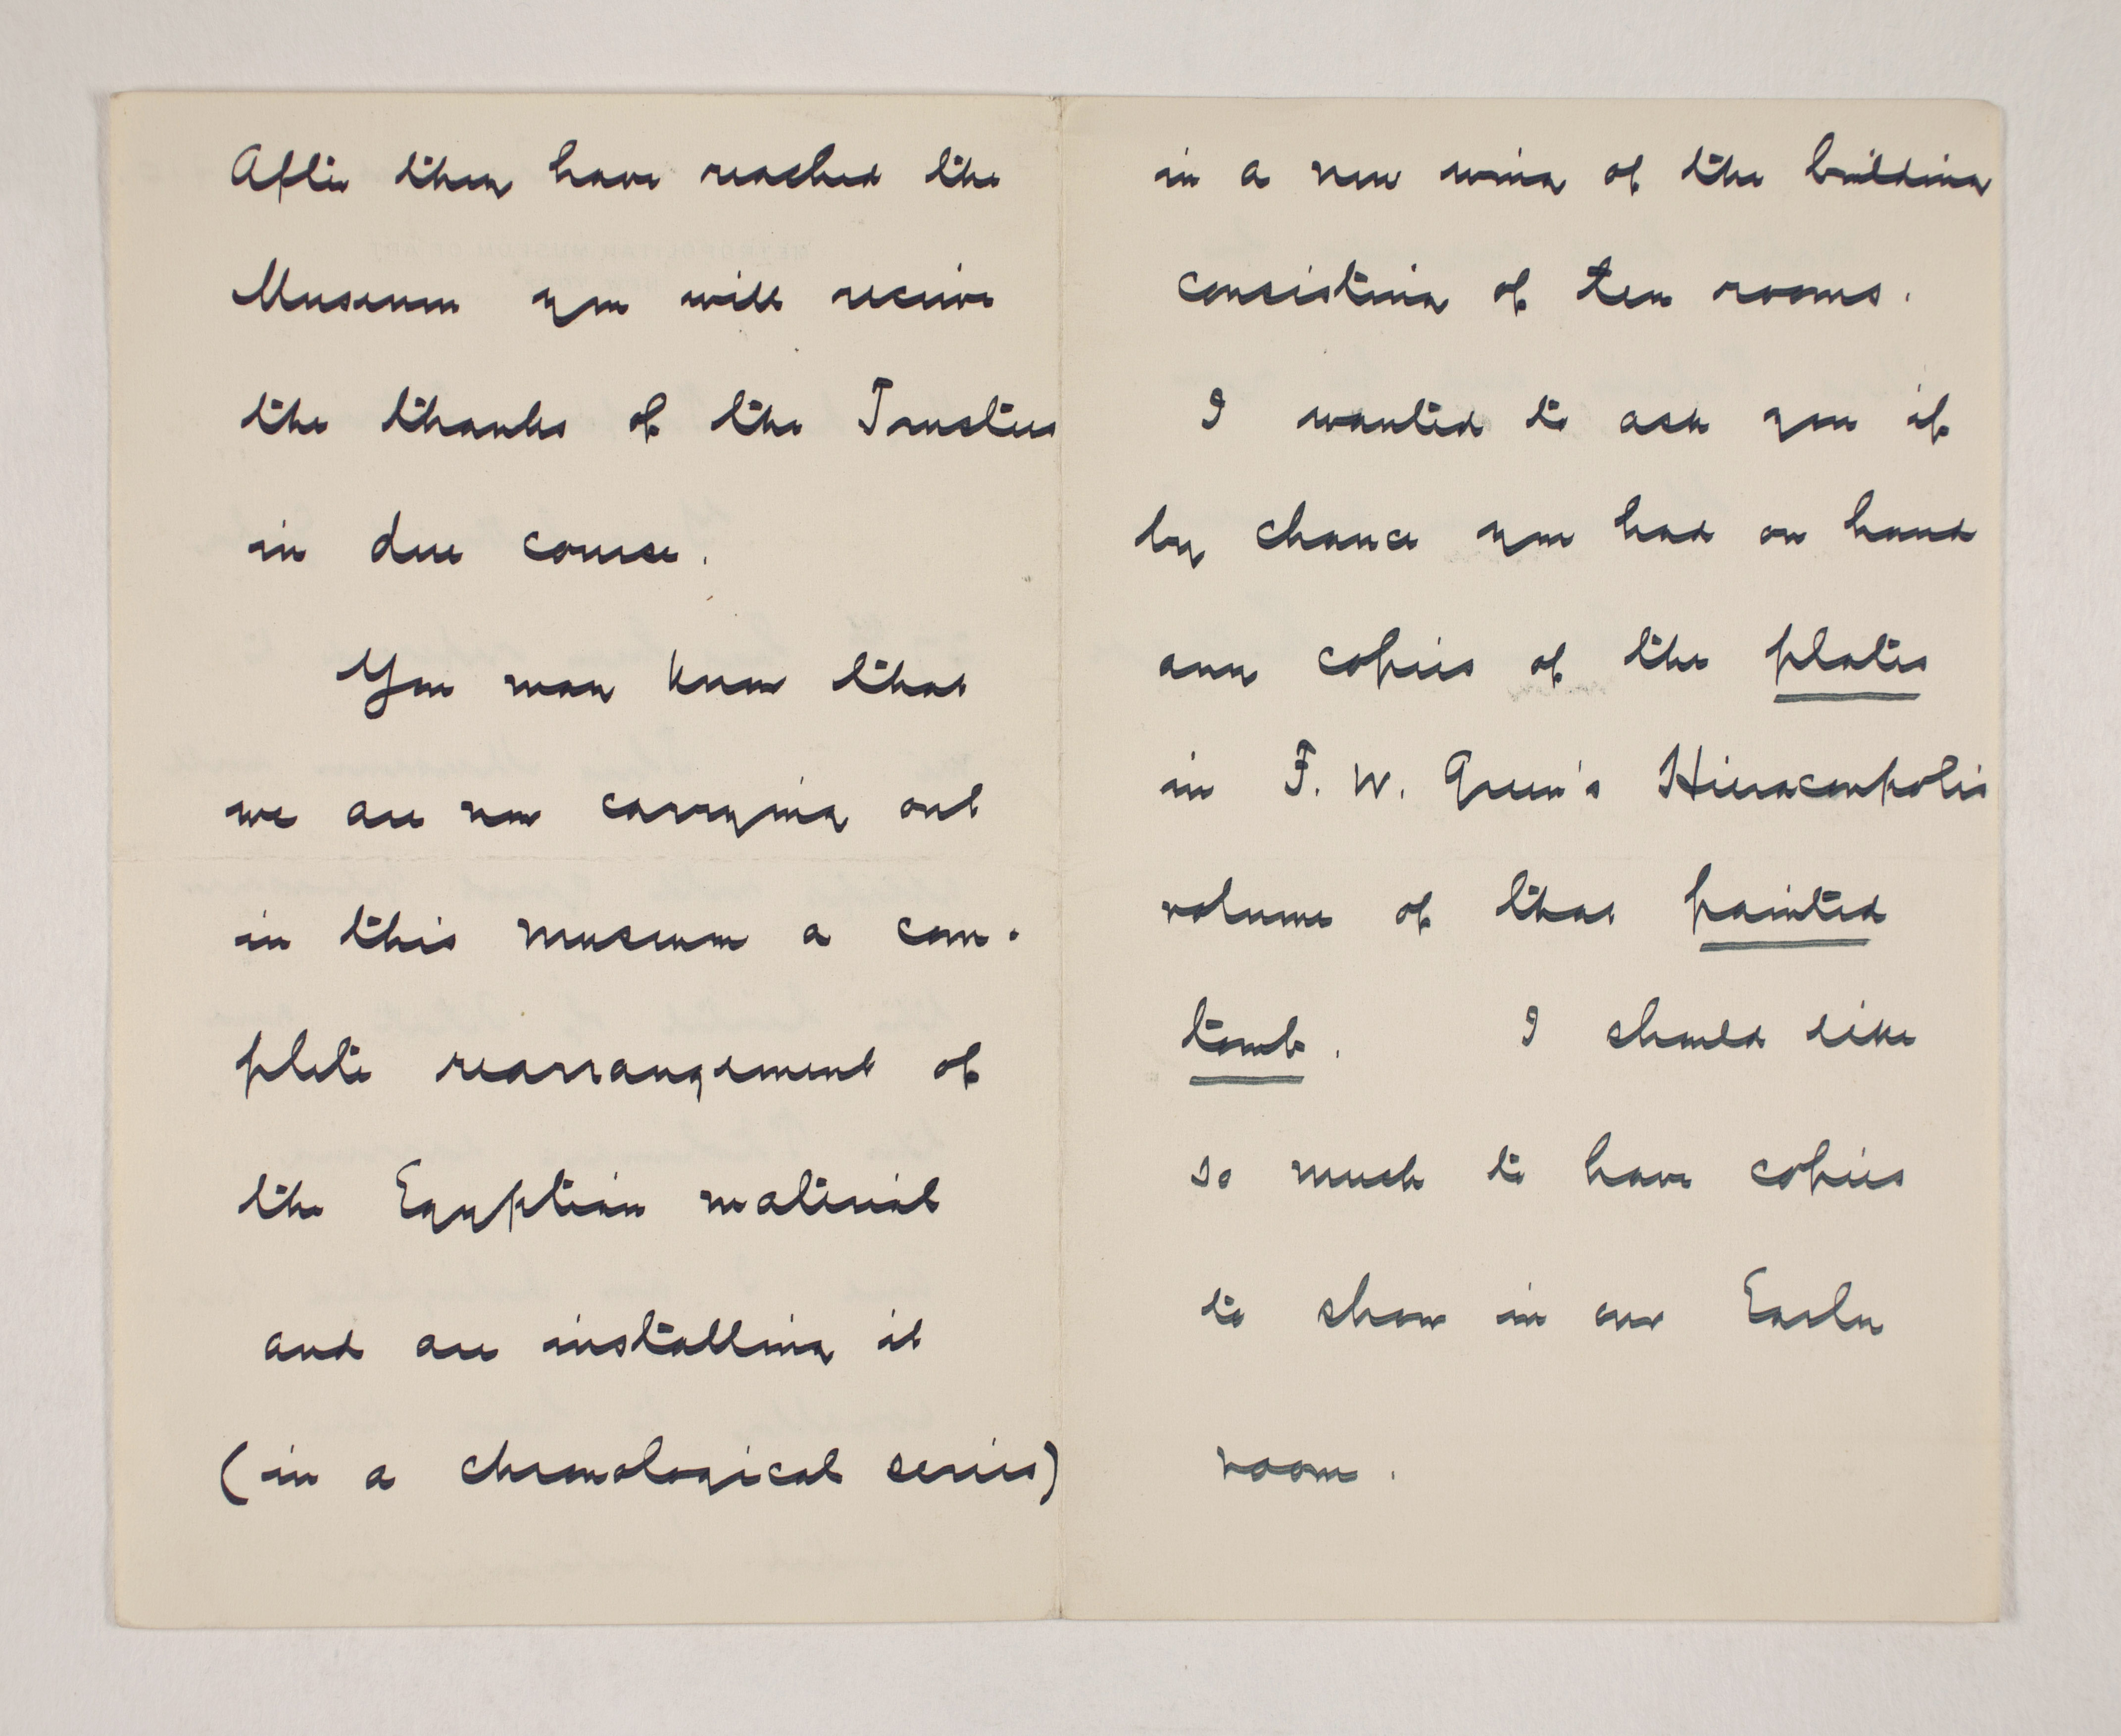 After they have reached the
Museum you will receive
the thanks of the Trustees
in due course.
You may know that
we are now carrying out
in this museum a com-
plete rearrangement of
the Egyptian material
and are installing it
(in a chronological series)
in a new wing of the building
consisting of ten rooms.
I wanted to ask you if
by chance you had on hand
any copies of the plates
in F. W. Green's Hieraconpolis
volume of that painted
tomb. I should like
so much to have copies
to show in our Early
room.